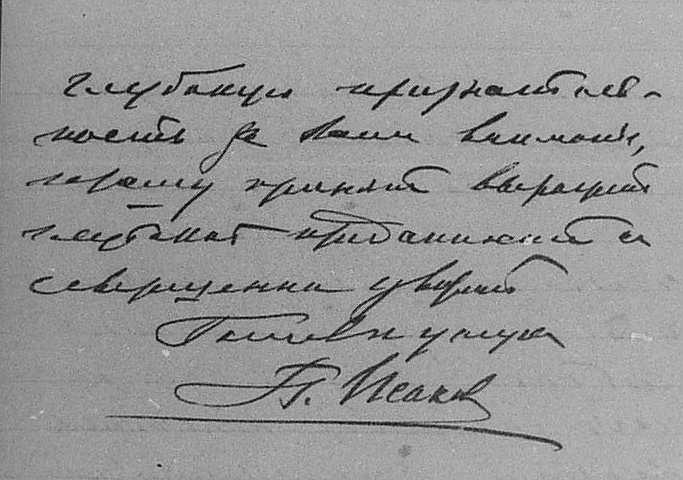 глубокую признатель-
ность за Ваше вниманіе,
прошу принять выраженія
глубокой преданности и
совершеннаго уваженія
Готовый къ услугамъ
П. Исаков